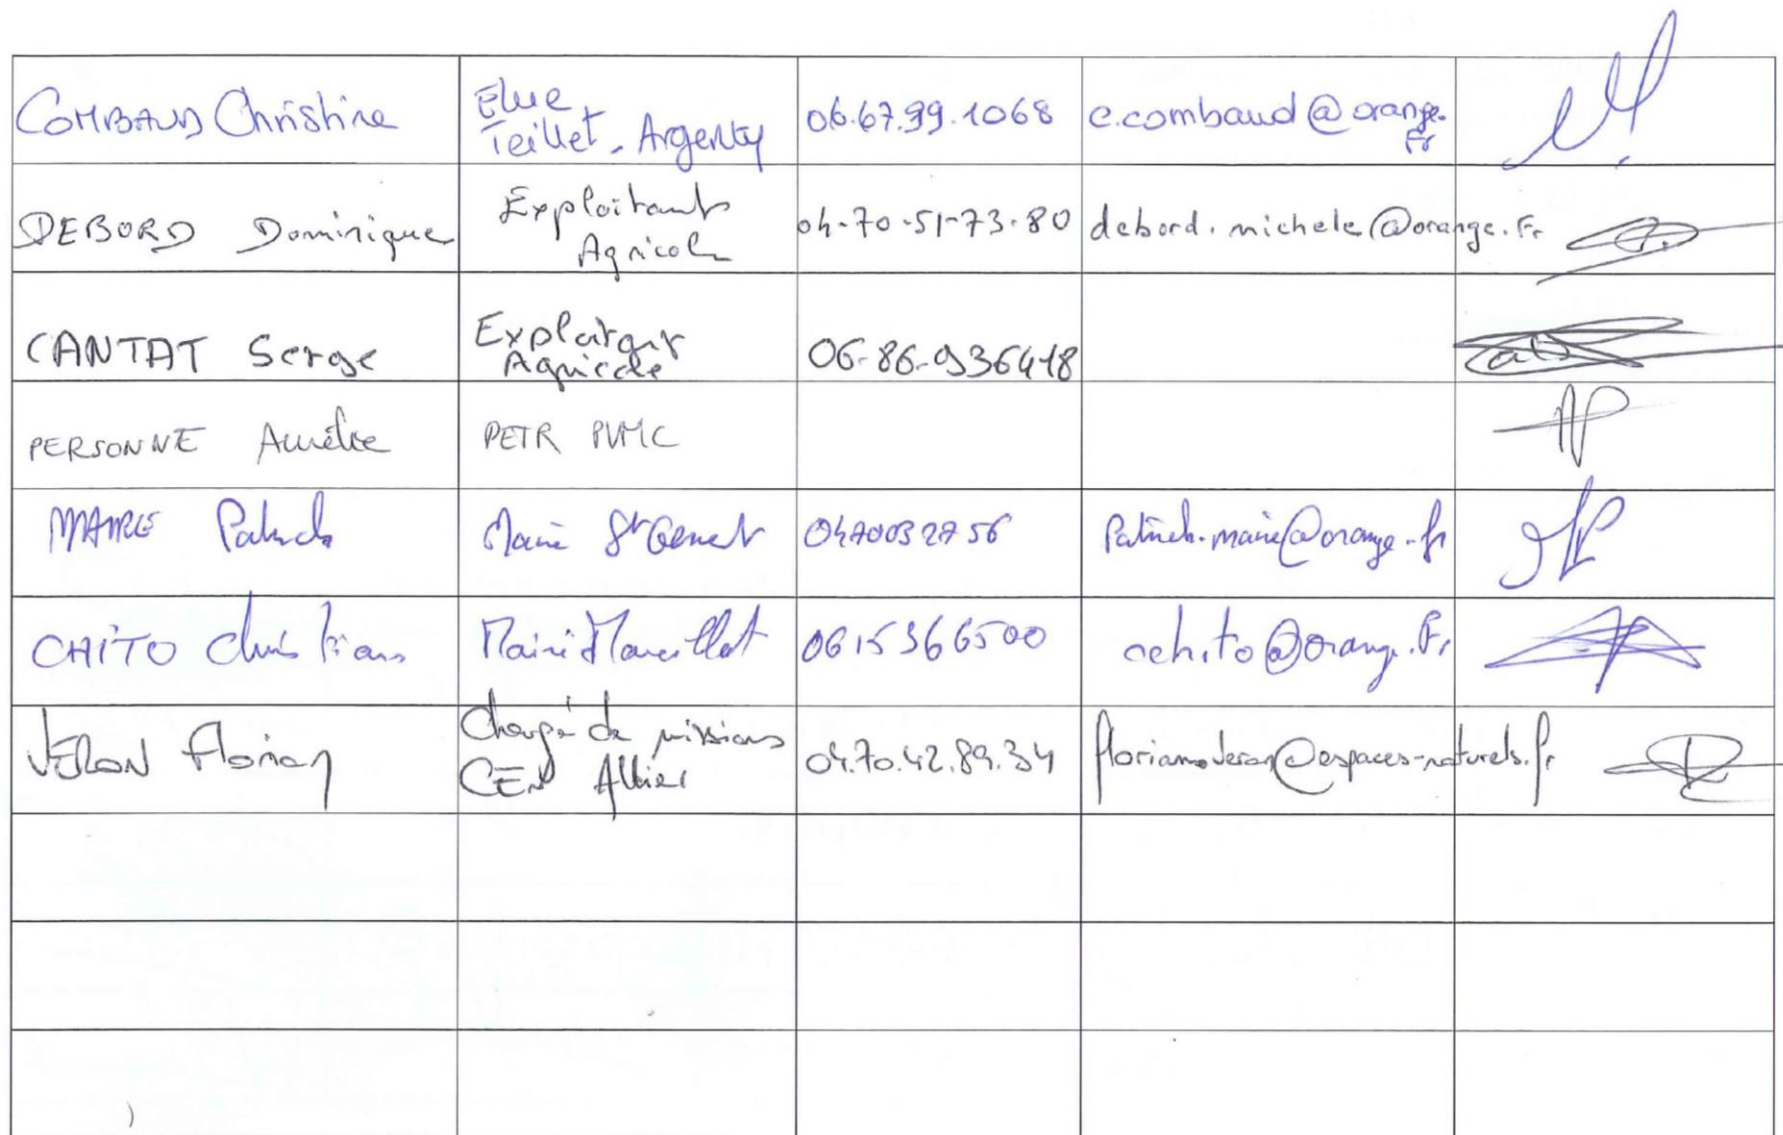 COMBAUD Christine
Elue
Teillet-Argenty
06.67.99.1068
c.combaud@orange.
Fr
DEBORD Dominique
Exploitants
Agricole
04-70-51-73-80
debord.michele@orange.Fr
CANTAT Serge
Exploitant
Agricole
06-86-936418
PERSONNE Aurélie
PETR PVMC
MAIRE Patrick
Maire St Genest
0470032756
Patrick.maire@orange.fr
CHITO Christian
Mairie Marcillat
0615366500
cchito@orange.Fr
VERON Florian
Chargé de missions
CEN Allier
04.70.42.89.34
florian.veron@espaces-naturels.fr